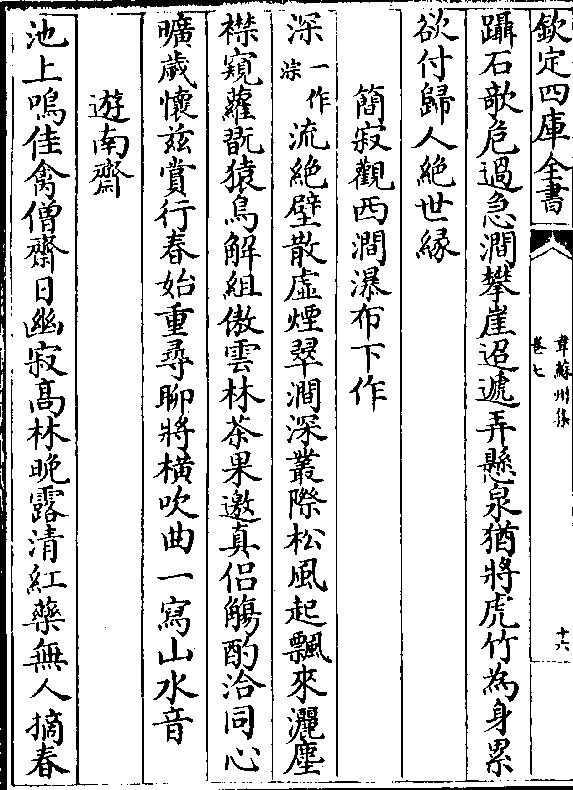 欽定四庫全書
韋蘇州集
卷七
十六
躡石欹危過急澗攀崖迢遞弄懸泉猶將虎竹為身累
欲付歸人絶世緣
簡寂觀西澗瀑布下作
深一作淙流絶壁散虛煙翠澗深叢際松風起飄來灑塵
襟窺蘿翫猿鳥解組傲雲林茶果邀真侶觴酌洽同心
曠歲懷兹賞行春始重尋聊將横吹曲一寫山水音
遊南齋
池上鳴佳禽僧齋日幽寂高林晚露清紅藥無人摘春